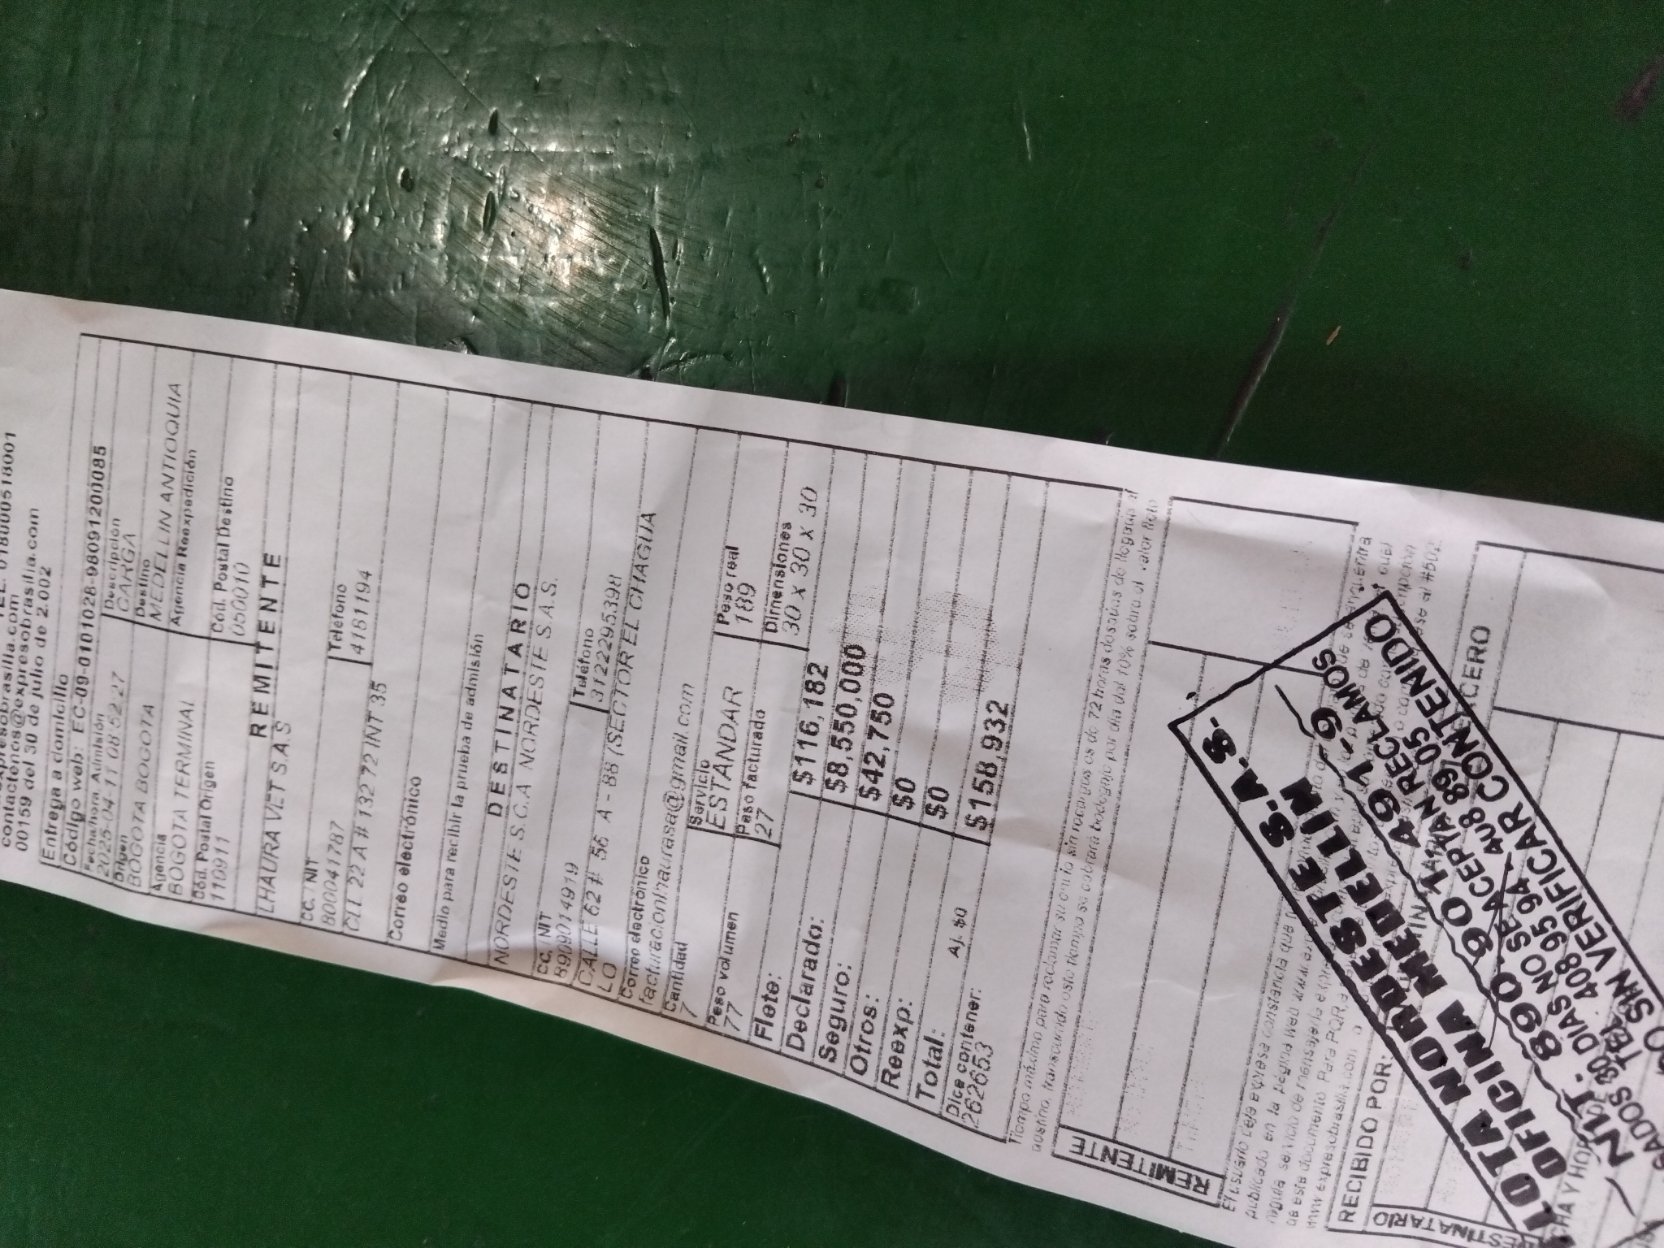 contactenos@expresobrasilia.com
00159 del 30 de julio de 2.002
Entrega a domicilio
Código web: EC-09-0101028-98091200085
Fecha/hora Admisión Descripción
2025-04-11 08:52:27 CARGA
Origen Destino
BOGOTA BOGOTA MEDELLIN ANTIOQUIA
Agencia Agencia Reexpedición
BOGOTA TERMINAL
Cód. Postal Origen Cód. Postal Destino
110911 050010
REMITENTE
LHAURA VET S.A.S
CC. NIT Teléfono
800041787 4181194
CLL 22 A # 132 72 INT 35
Correo electrónico
Medio para recibir la prueba de admisión
DESTINATARIO
NORDESTE S.C.A NORDESTE S.A.S.
CC. NIT Teléfono
8909014919 3122295398
CALLE 62 # 56 A - 88 (SECTOR EL CHAGUA
LO
Correo electrónico
facturaconlhaurasa@gmail.com
Cantidad Servicio
7 ESTANDAR
Peso volumen Peso facturado Peso real
77 27 189
Dimensiones
30 x 30 x 30
Flete: $116,182
Declarado: $8,550,000
Seguro: $42,750
Otros: $0
Reexp: $0
Total: Aj. $0 $158,932
Dice contener:
262653
Tiempo máximo para reclamar su envío sin recargos es de 72 horas después de llegado al
destino, transcurrido este tiempo se cobrará bodegaje por día del 10% sobre el valor flete
REMITENTE
El usuario deja expresa constancia que
publicado en la página web
regula servicio de mensajería expresa
de este documento. Para PQR
www.expresobrasilia.com
RECIBIDO POR:
FLOTA NORDESTE S.A.S.
OFICINA MEDELLIN
NIT. 890 901 491-9
30 DIAS NO SE ACEPTAN RECLAMOS
TEL. 408 95 94 408 89 05
SIN VERIFICAR CONTENIDO